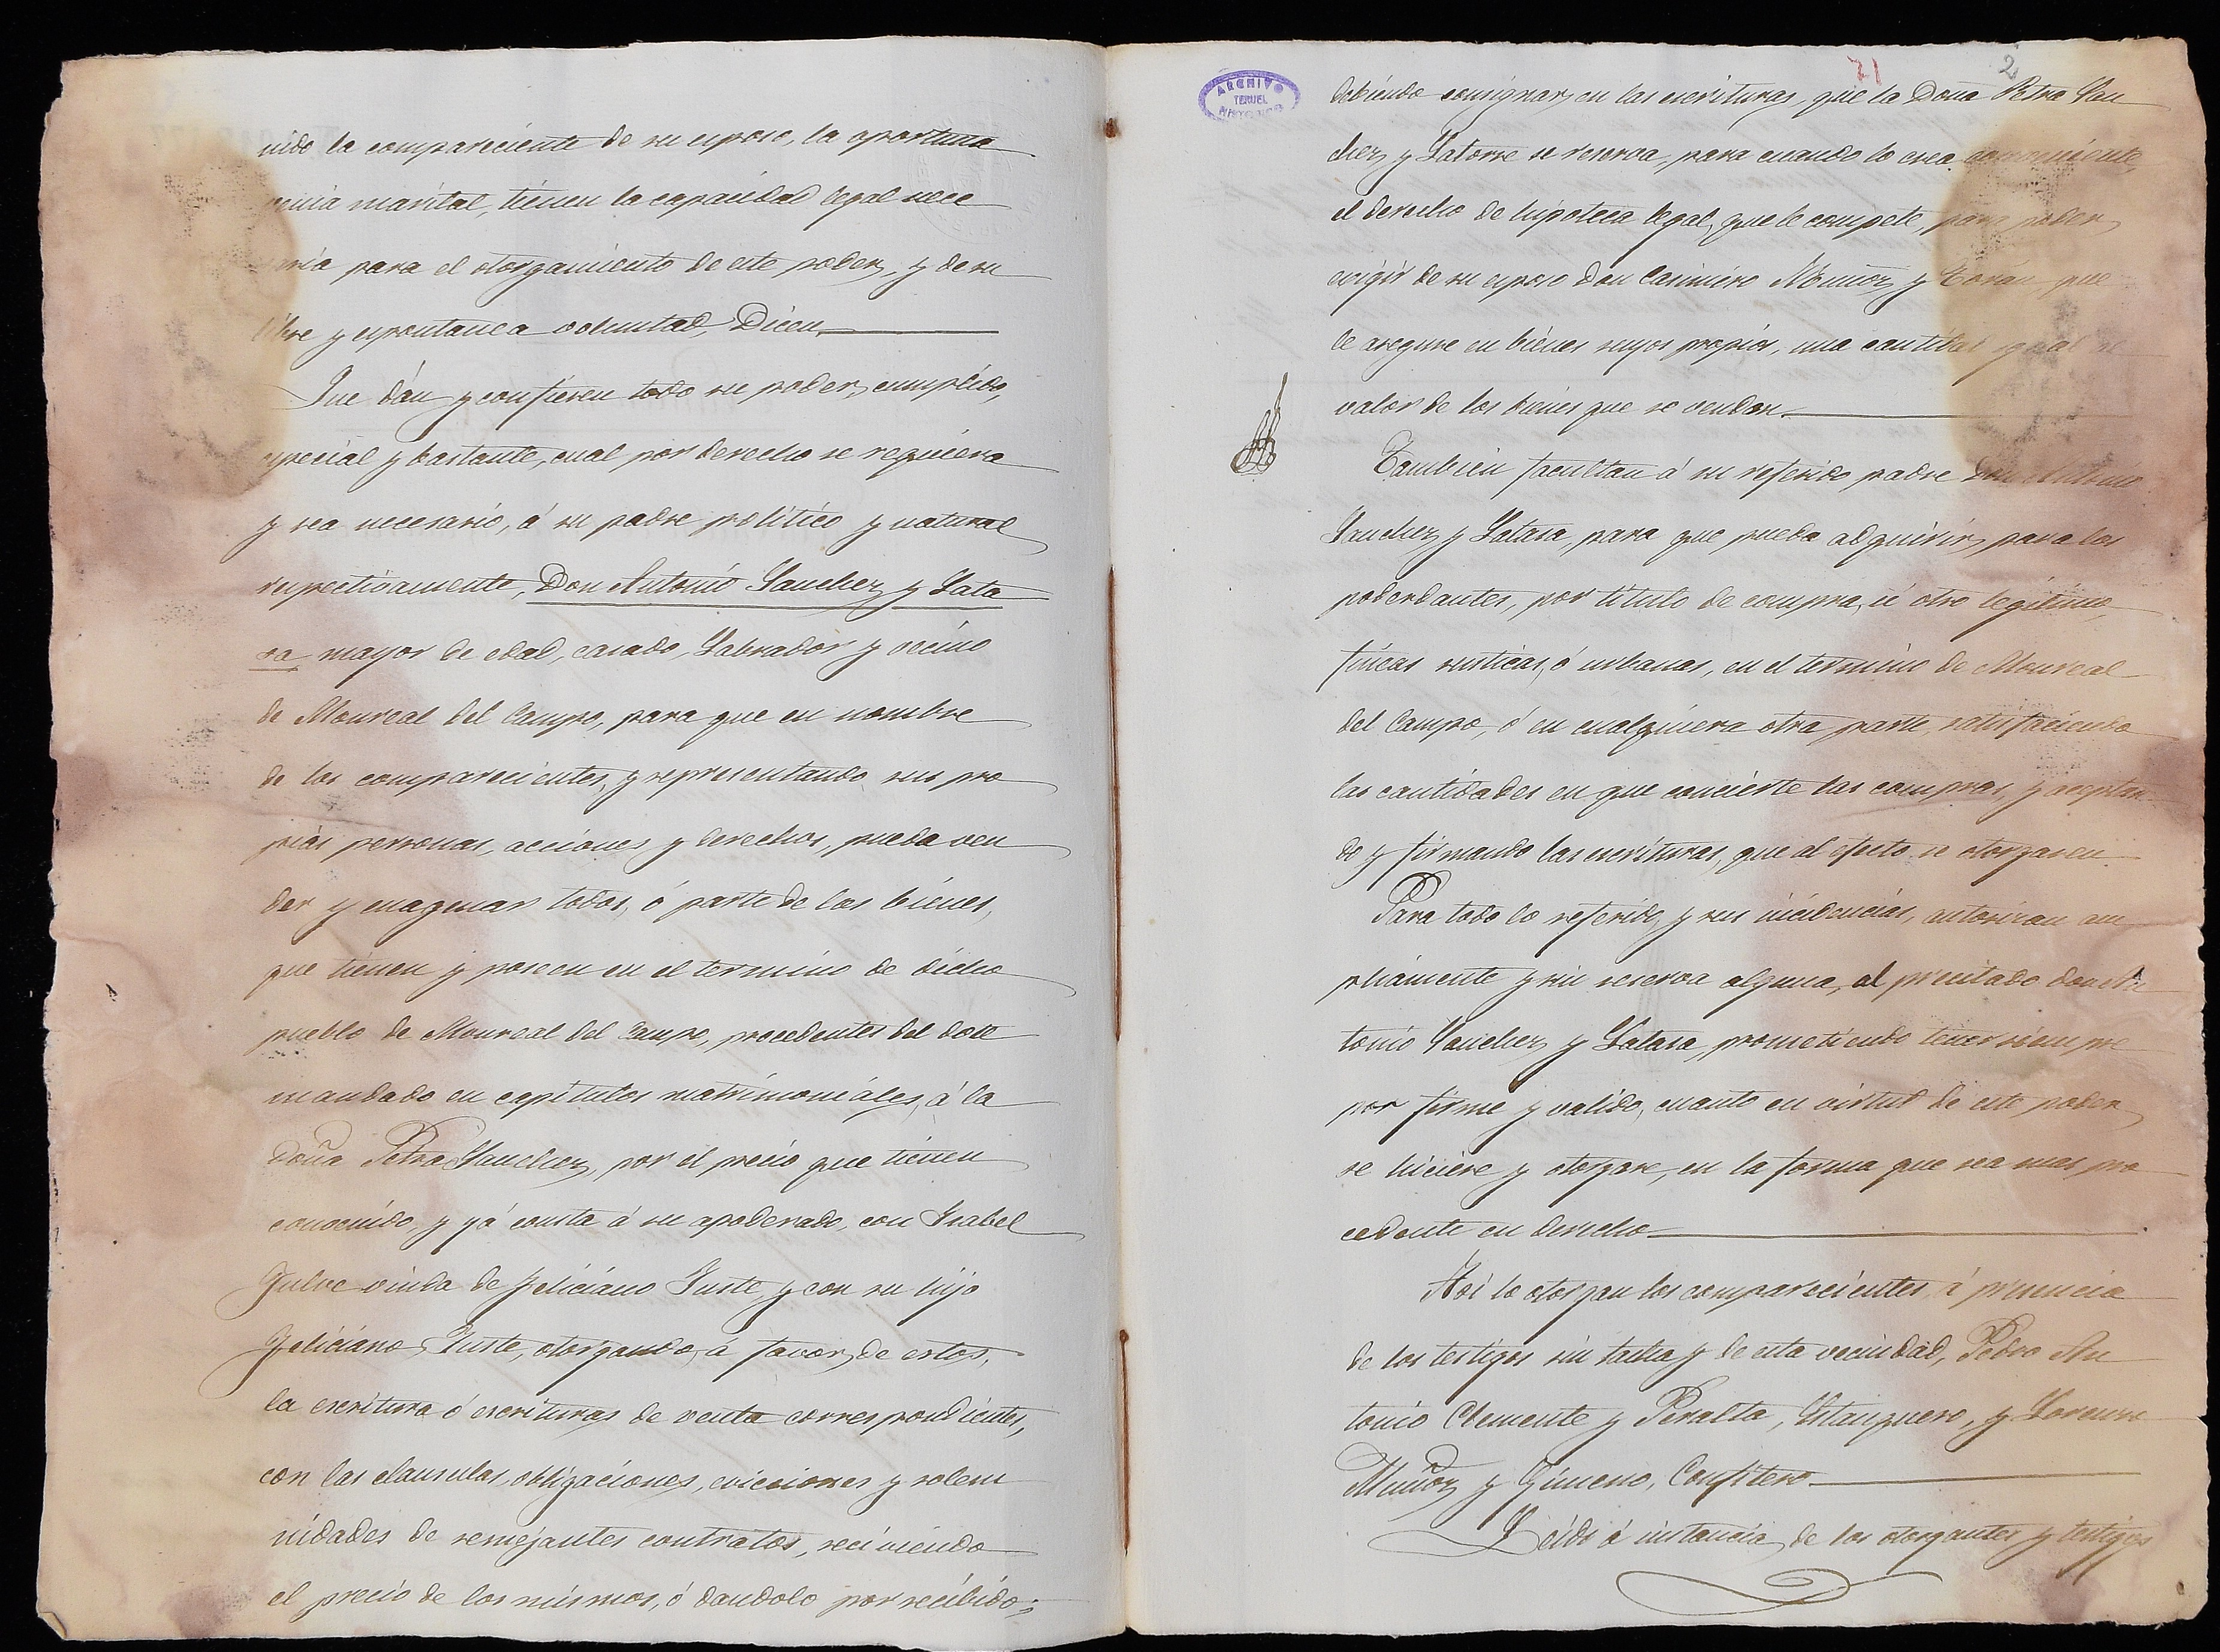 nido la compareciente de su esposo, la oportuna
venia marital, tienen la capacidad legal nece
saria para el otorgamiento de este poder, y de su
libre y espontanea voluntad, Dicen
Que dán y confieren todo su poder, cumplido,
especial y bastante, cual por derecho se requiera
y sea necesario, á su padre politico y natural
respectivamente, Don Antonio Sanchez y Lata
sa, mayor de edad, casado, Labrador y vecino
de Monreal del Campo, para que en nombre
de los comparecientes, y representando sus pro
pias personas, acciones y derechos, pueda ven
der y enagenar todos, ó parte de los bienes,
que tienen y poseen en el termino de dicho
pueblo de Monreal del Campo, procedentes del dote
mandado en capitulos matrimoniales, á la
Doña Petra Sanchez, por el precio que tienen
convenido, y yá consta á su apoderado, con Isabel
Gulve viuda de Feliciano Juste, y con su hijo
Feliciano Juste, otorgando, á favor, de estos,
la escritura ó escrituras de venta correspondientes,
con las clausulas, obligaciones, evicciones y solem
nidades de semejantes contratos, reciviendo
el precio de los mismos, ó dandolo por recibido;
ARCHIVO
TERUEL
HISTORICO
71
2
debiendo consignar, en las escrituras, que la Doña Petra San
chez y Latorre se reserva, para cuando lo crea conveniente,
el derecho de hipoteca legal, que le compete, para poder
exigir de su esposo Don Casimiro Muñoz y Torán que
le asegure en bienes suyos propios, una cantidad igual al
valor de los bienes que se vendan.
Tambien facultan á su referido padre Don Antonio
Sanchez y Latasa, para que pueda adquirir, para los
poderdantes, por titulo de compra, ú otro legitimo,
fincas rusticas, ó urbanas, en el termino de Monreal
del Campo, ó en cualquiera otra parte, satisfaciendo
las cantidades en que concierte las compras, y aceptan
do y firmando las escrituras, que al efecto se otorgasen.
Para todo lo referido, y sus incidencias, autorizan am
pliamente y sin reserva alguna, al precitado don An
tonio Sanchez y Latasa, prometiendo tener siempre
por firme y valido, cuanto en virtud de este poder,
se hiciere y otorgare, en la forma que sea mas pro
cedente en derecho
Asi lo otorgan los comparecientes, á presencia
de los testigos sin tacha y de esta vecindad, Pedro An
tonio Clemente y Peralta, Estanquero, y Lorenzo
Muñoz y Gimeno, Confitero
Leido á instancia, de los otorgantes y testigos